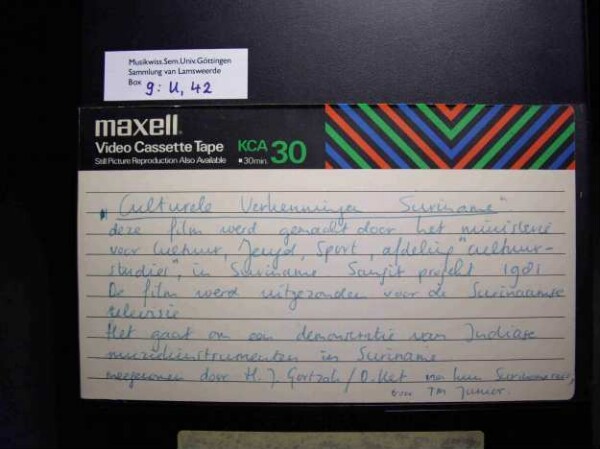 Musikwiss.Sem.Univ.Göttingen
Sammlung van Lamsweerde
Box 9: U, 42
maxell.
Video Cassette Tape
Still Picture Reproduction Also Available
KCA 30
■30min.
"Culturele Verkenningen Suriname"
deze film werd gemaakt door het ministerie
voor Cultuur, Jeugd, Sport, afdeling "cultuur-
studies", in Suriname Sangit projekt 1981
De film werd uitgezonden voor de Surinaamse
televisie
Het gaat om een demonstratie van Indiase
muziekinstrumenten in Suriname
door H. J. /
TM Junior.